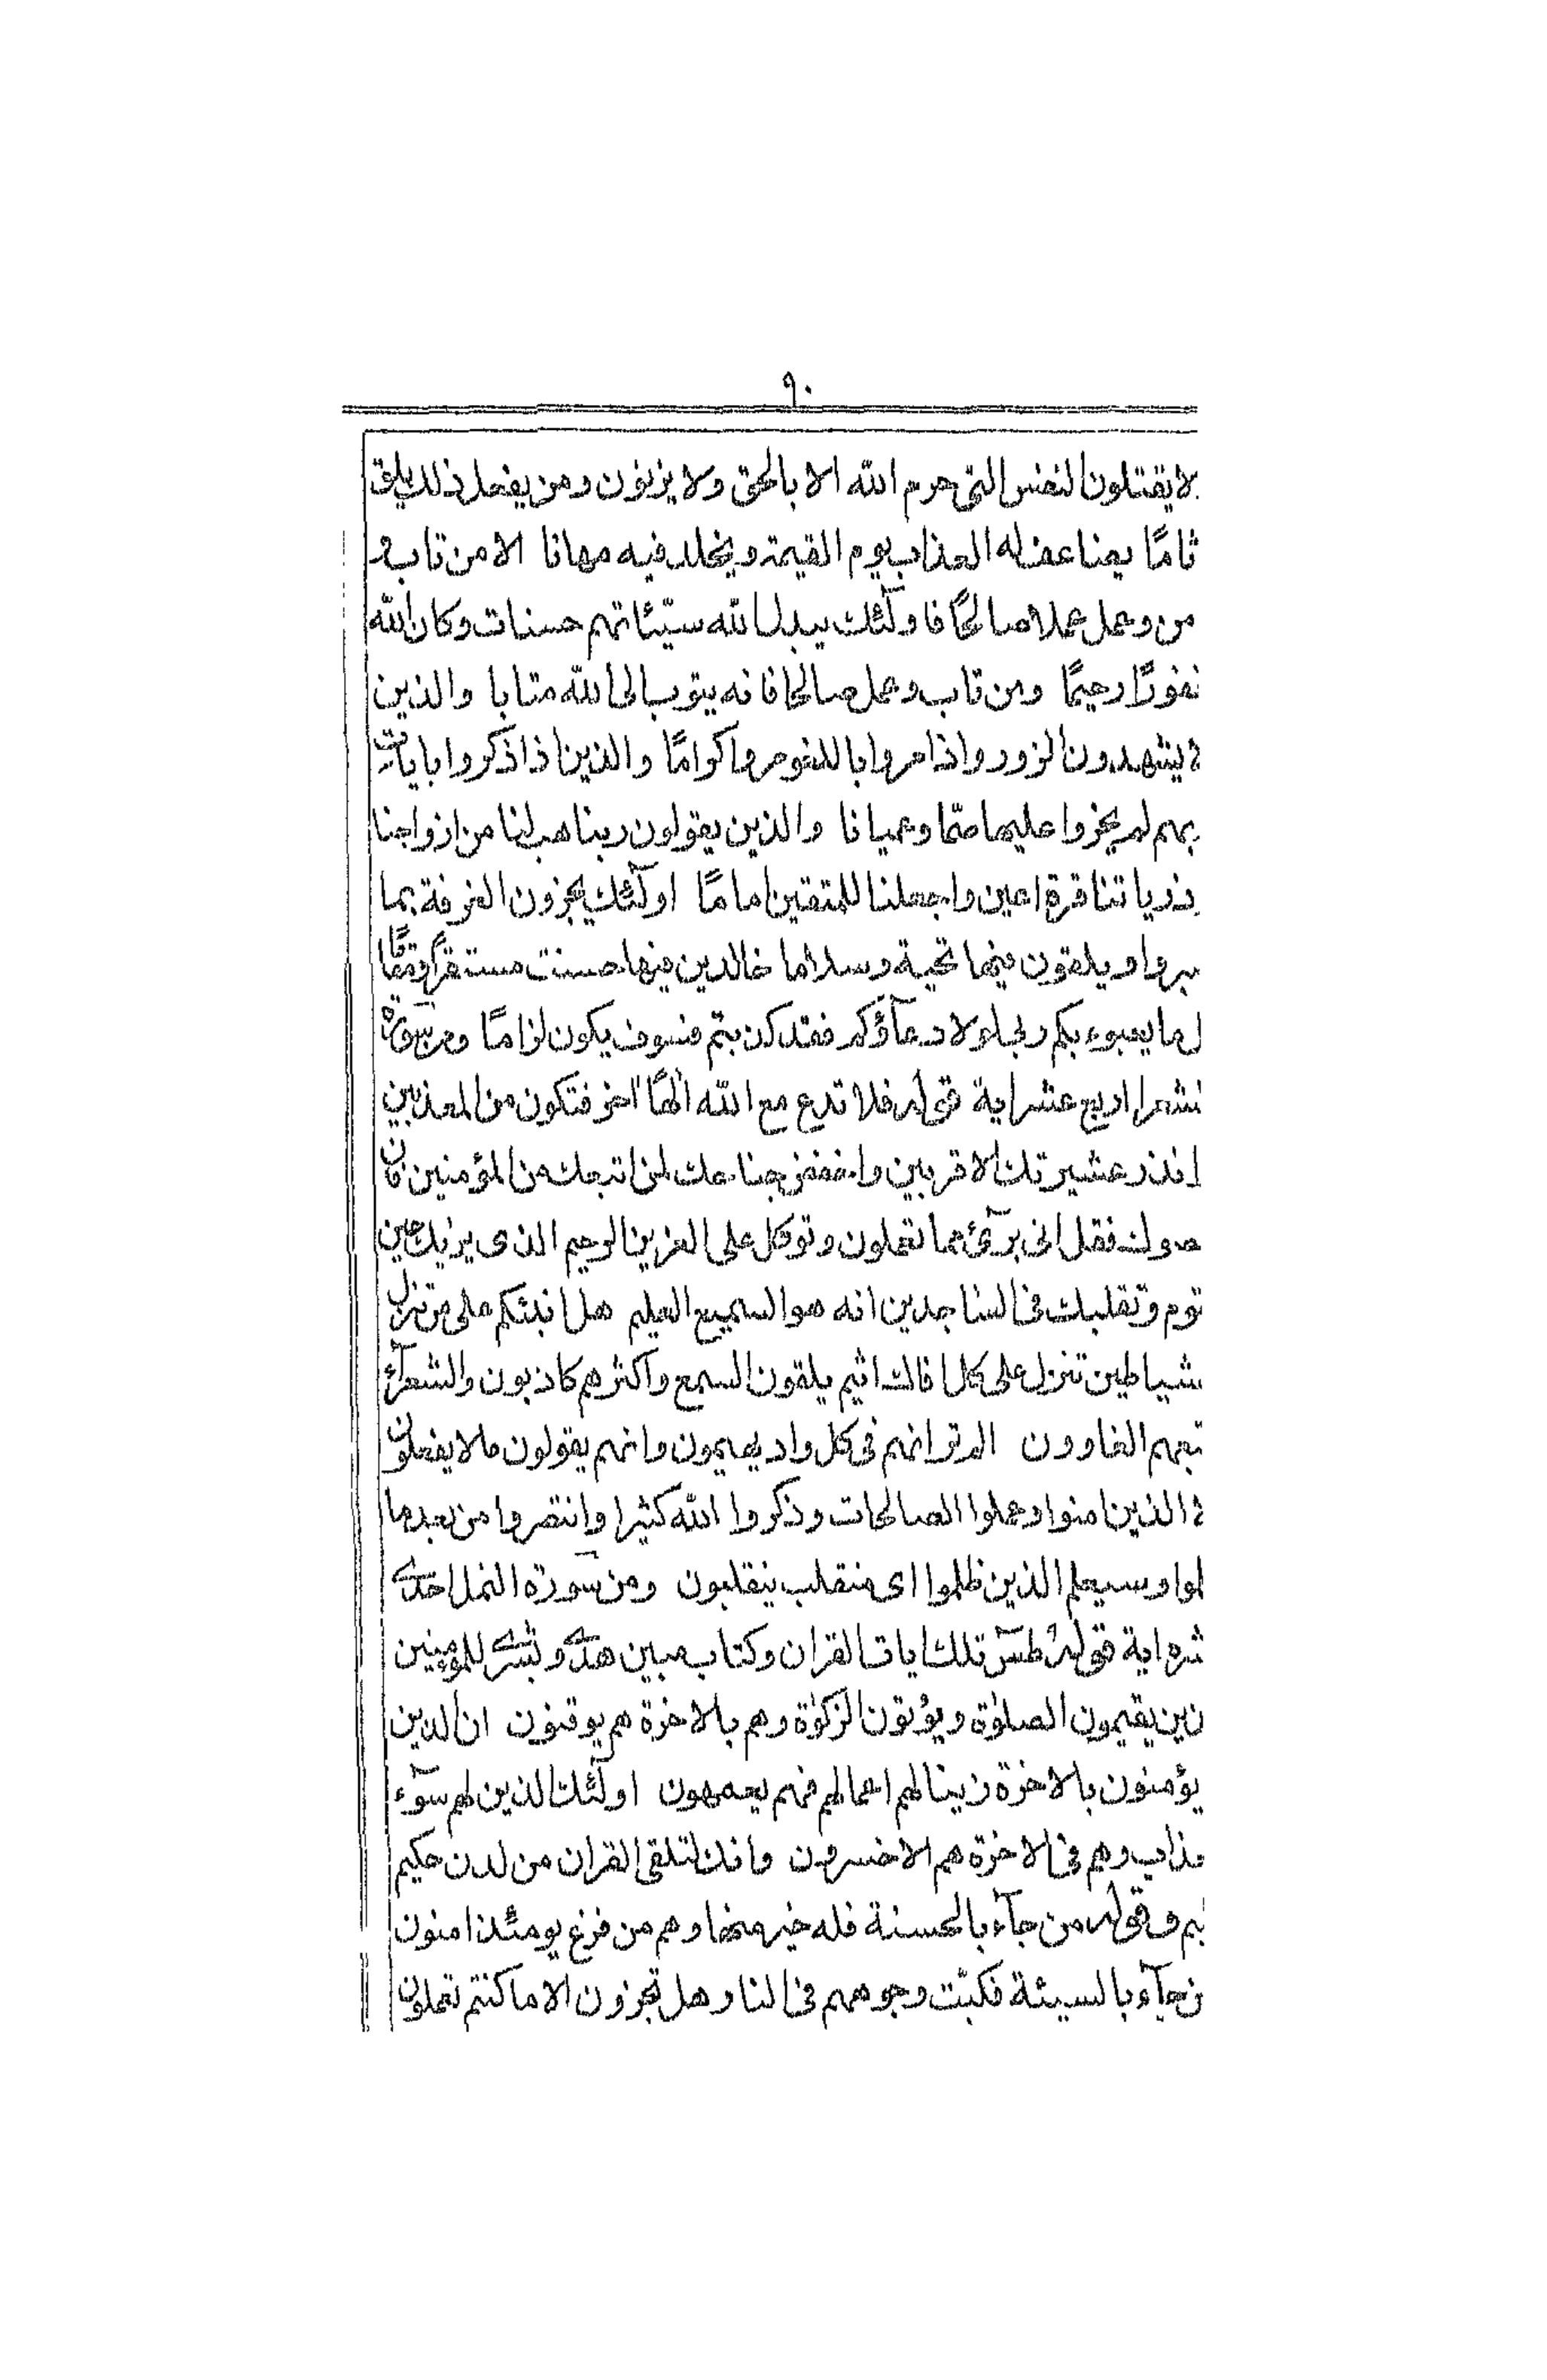 ٩٠
لا يقتلون النفس التى حرم الله الا بالحق ولا يزنون ومن يفعل ذلك يلق
ثامًا يضاعف له العذاب يوم القيمة ويخلد فيه مهانا الا من تاب و
من وعمل عملا صالحًا فاولٓئك يبدل الله سيّئاتهم حسنات وكان الله
غفورًا رحيمًا ومن تاب وعمل صالحا فانه يتوب الى الله متابا والذين
لا يشهدون الزور واذا مروا باللغو مروا كرامًا والذين اذا ذكروا بايات
بهم لم يخروا عليها صمّا وعميانا والذين يقولون ربنا هب لنا من ازواجنا
وذرياتنا قرة اعين واجعلنا للمتقين امامًا اولٓئك يجزون الغرفة بما
صبروا ويلقون فيها تحية وسلاما خالدين فيها حسنت مستقرًا ومقامًا
ل ما يعبوء بكم ربى لولا دعآؤكم فقد كذبتم فسوف يكون لزامًا ومن سورة
لشعرا اربع عشر اية قوله فلا تدع مع الله الٰهًا اخر فتكون من المعذبين
انذر عشيرتك الاقربين واخفض جناحك لمن اتبعك من المؤمنين فان
صوك فقل انى برٓئ مما تعملون وتوكل على العزيز الرحيم الذى يريك حين
تقوم وتقلبك فى الساجدين انه هو السميع العليم هل انبئكم على من تنزل
لشياطين تنزل على كل افاك اثيم يلقون السمع واكثرهم كاذبون والشعرآء
تبعهم الغاوون الم تر انهم فى كل واد يهيمون وانهم يقولون ما لا يفعلون
لا الذين امنوا وعملوا الصالحات وذكروا الله كثيرا وانتصروا من بعد ما
لموا وسيعلم الذين ظلموا اى منقلب ينقلبون ومن سورة النمل احدى
شره اية قوله طسٓ تلك ايات القران وكتاب مبين هدى وبشرى للمؤمنين
ذين يقيمون الصلوٰة ويؤتون الزكوٰة وهم بالاخرة هم يوقنون ان الذين
يؤمنون بالاخرة زينا لهم اعمالهم فهم يعمهون اولٓئك الذين لهم سوٓء
عذاب وهم فى الاخرة هم الاخسرون وانك لتلقى القران من لدن حكيم
يم وقوله من جآء بالحسنة فله خير منها وهم من فزع يومئذ امنون
ن جآء بالسيئة فكبّت وجوههم فى النار هل تجزون الا ما كنتم تعملون